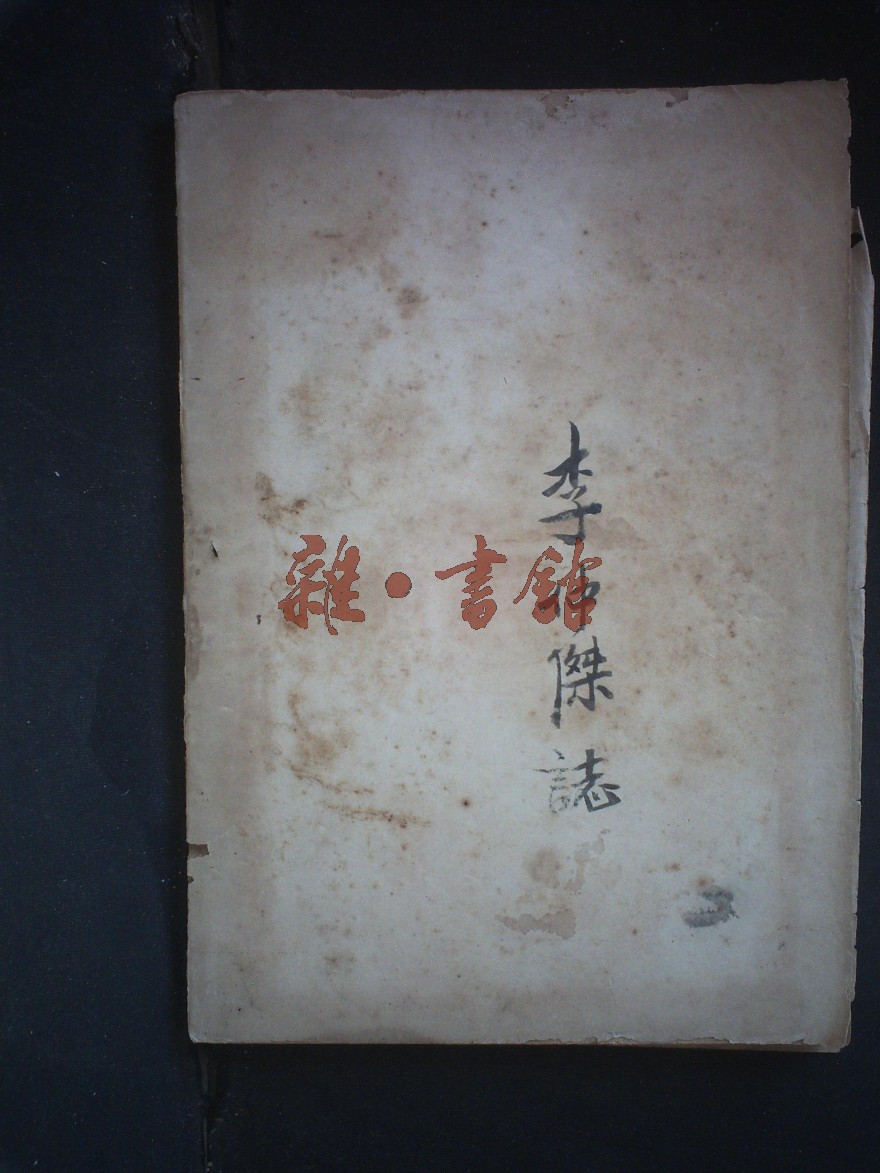 李
傑
誌
雜·書館